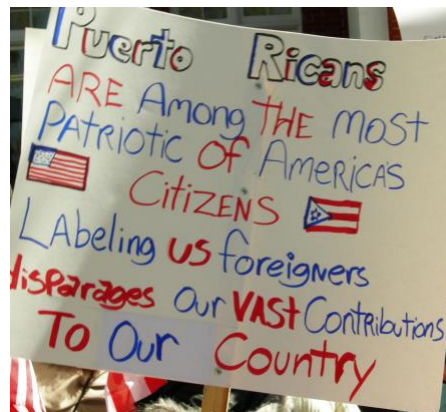 Puerto Ricans
ARE Among THE most
PATRIOTIC OF AMERICA'S
CITIZENS
LABELING US foreigners
disparages Our VAST Contributions
To Our Country